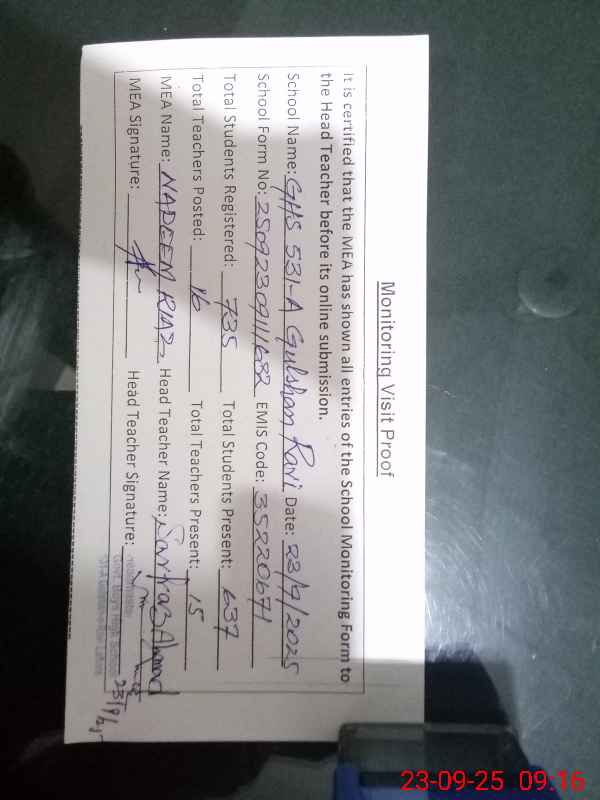 Monitoring Visit Proof
It is certified that the MEA has shown all entries of the School Monitoring Form to
the Head Teacher before its online submission.
School Name: GHS 531-A Gulshan Ravi Date: 23/9/2025
School Form No: 2509230911682 EMIS Code: 35220671
Total Students Registered: 735 Total Students Present: 637
Total Teachers Posted: 16 Total Teachers Present: 15
MEA Name: NADEEM RIAZ Head Teacher Name: Sarfraz Ahmad
MEA Signature: Head Teacher Signature:
Headmaster
Govt. Boys High School 23/9/25
23-09-25 09:16